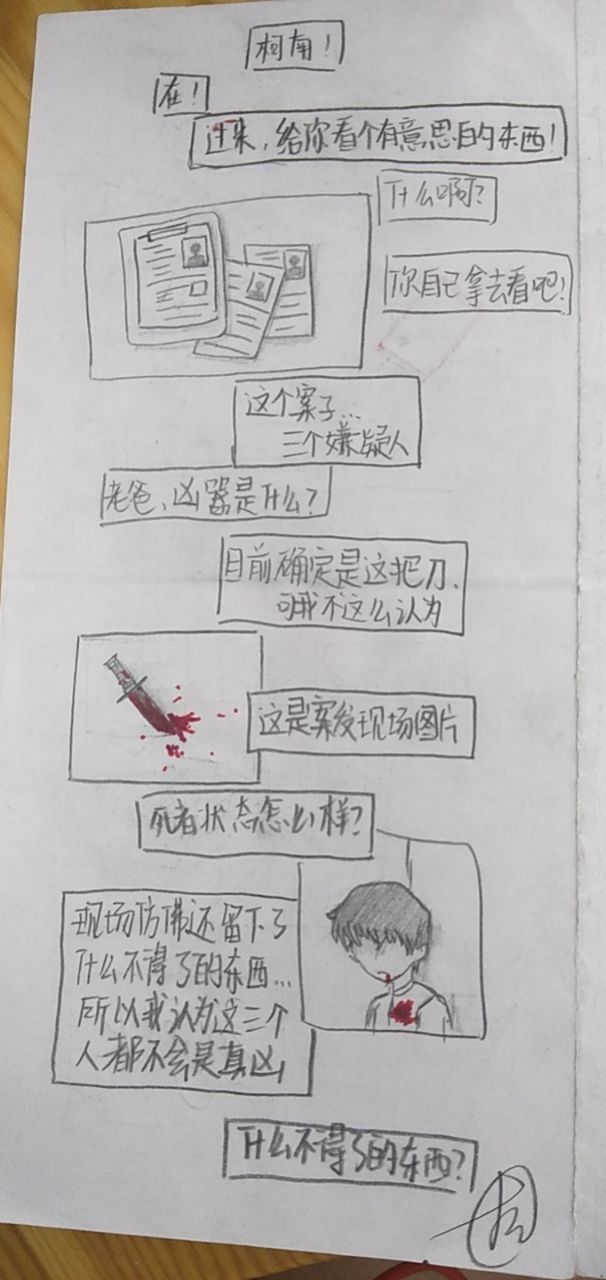 柯南!
在!
过来,给你看个有意思的东西!
什么啊?
你自己拿去看吧!
这个案子...
三个嫌疑人
老爸、凶器是什么?
目前确定是这把刀.
可我不这么认为
这是案发现场图片
死者状态怎么样?
现场仿佛还留下了
什么不得了的东西...
所以我认为这三个
人都不会是真凶
什么不得了的东西?